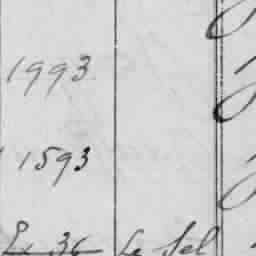 1993
1593
36 Le Sel